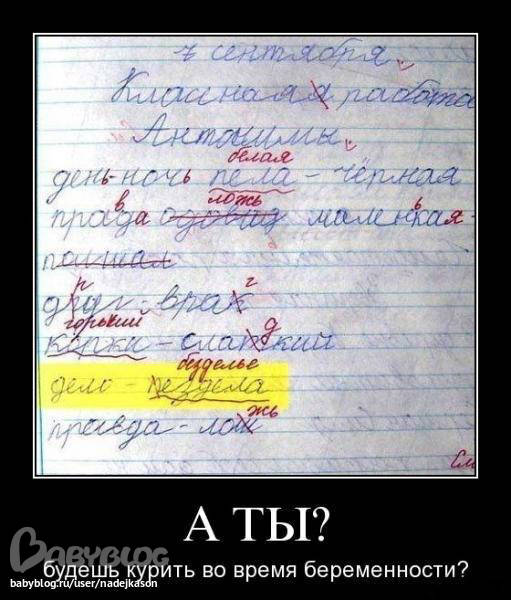 7 сентября.
Классная работа
Антонимы.
белая
день-ночь пела - чёрная
в ложь ь
прада маленкая-
р г
друг - врак
горький д
коржи - слаткий
безделье
дело - пездела
жь
правда - лош
См
А ТЫ?
BABYBLOG
будешь курить во время беременности?
babyblog.ru/user/nadejkason